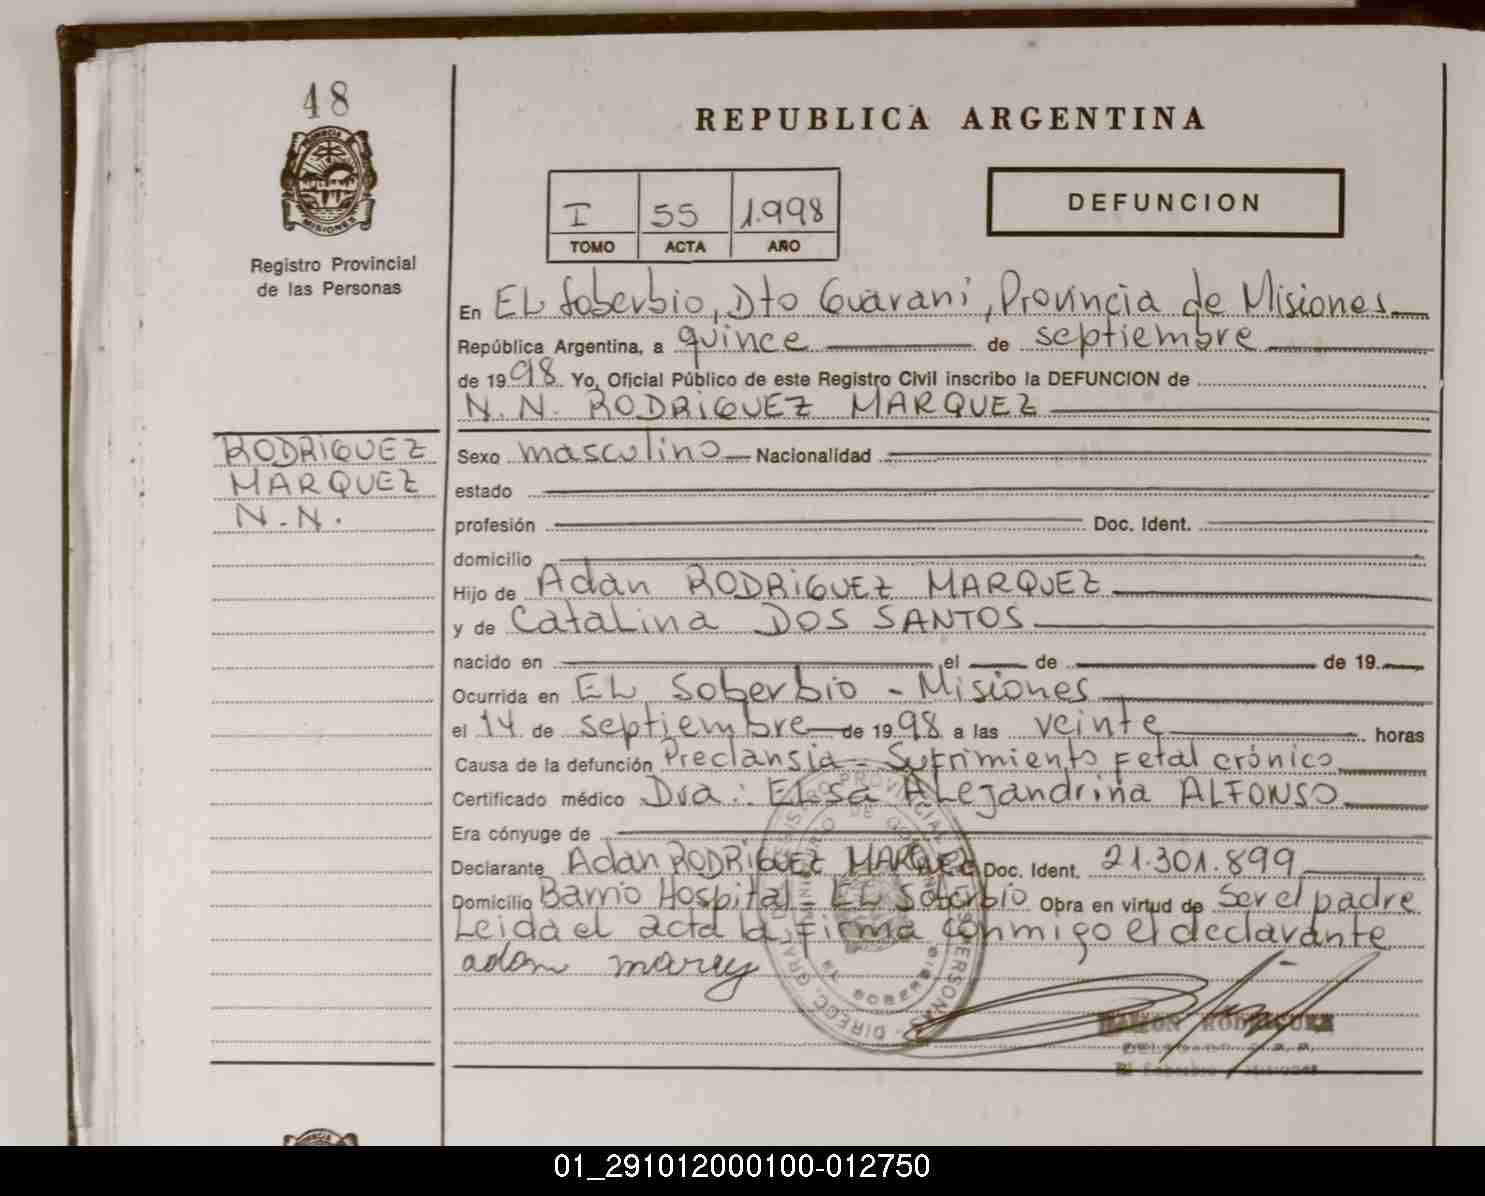 48
PROVINCIA
MISIONES
Registro Provincial
de las Personas
REPUBLICA ARGENTINA
I 55 1.998
TOMO ACTA AÑO
DEFUNCION
En EL Soberbio, Dto Guaraní, Provincia de Misiones
República Argentina, a quince de septiembre
de 1998 Yo, Oficial Público de este Registro Civil inscribo la DEFUNCION de
N. N. RODRIGUEZ MARQUEZ
RODRIGUEZ
MARQUEZ
N.N.
Sexo masculino Nacionalidad
estado
profesión Doc. Ident.
domicilio
Hijo de Adan RODRIGUEZ MARQUEZ
y de Catalina DOS SANTOS
nacido en el de de 19
Ocurrida en EL Soberbio - Misiones
el 14 de septiembre de 1998 a las veinte horas
Causa de la defunción Preclansia - Sufrimiento Fetal crónico
Certificado médico Dra: Elsa Alejandrina ALFONSO
Era cónyuge de
Declarante Adan RODRIGUEZ MARQUEZ Doc. Ident. 21.301.899
Domicilio Barrio Hospital - EL Soberbio Obra en virtud de Ser el padre
Leida el acta la firma conmigo el declarante
adan
RAMON RODRIGUEZ
El Soberbio
01_291012000100-012750